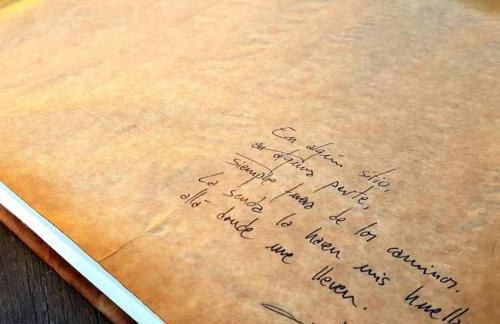 En algún sitio,
en alguna parte,
siempre fuera de los caminos.
La senda la hacen mis
allá donde me lleven.